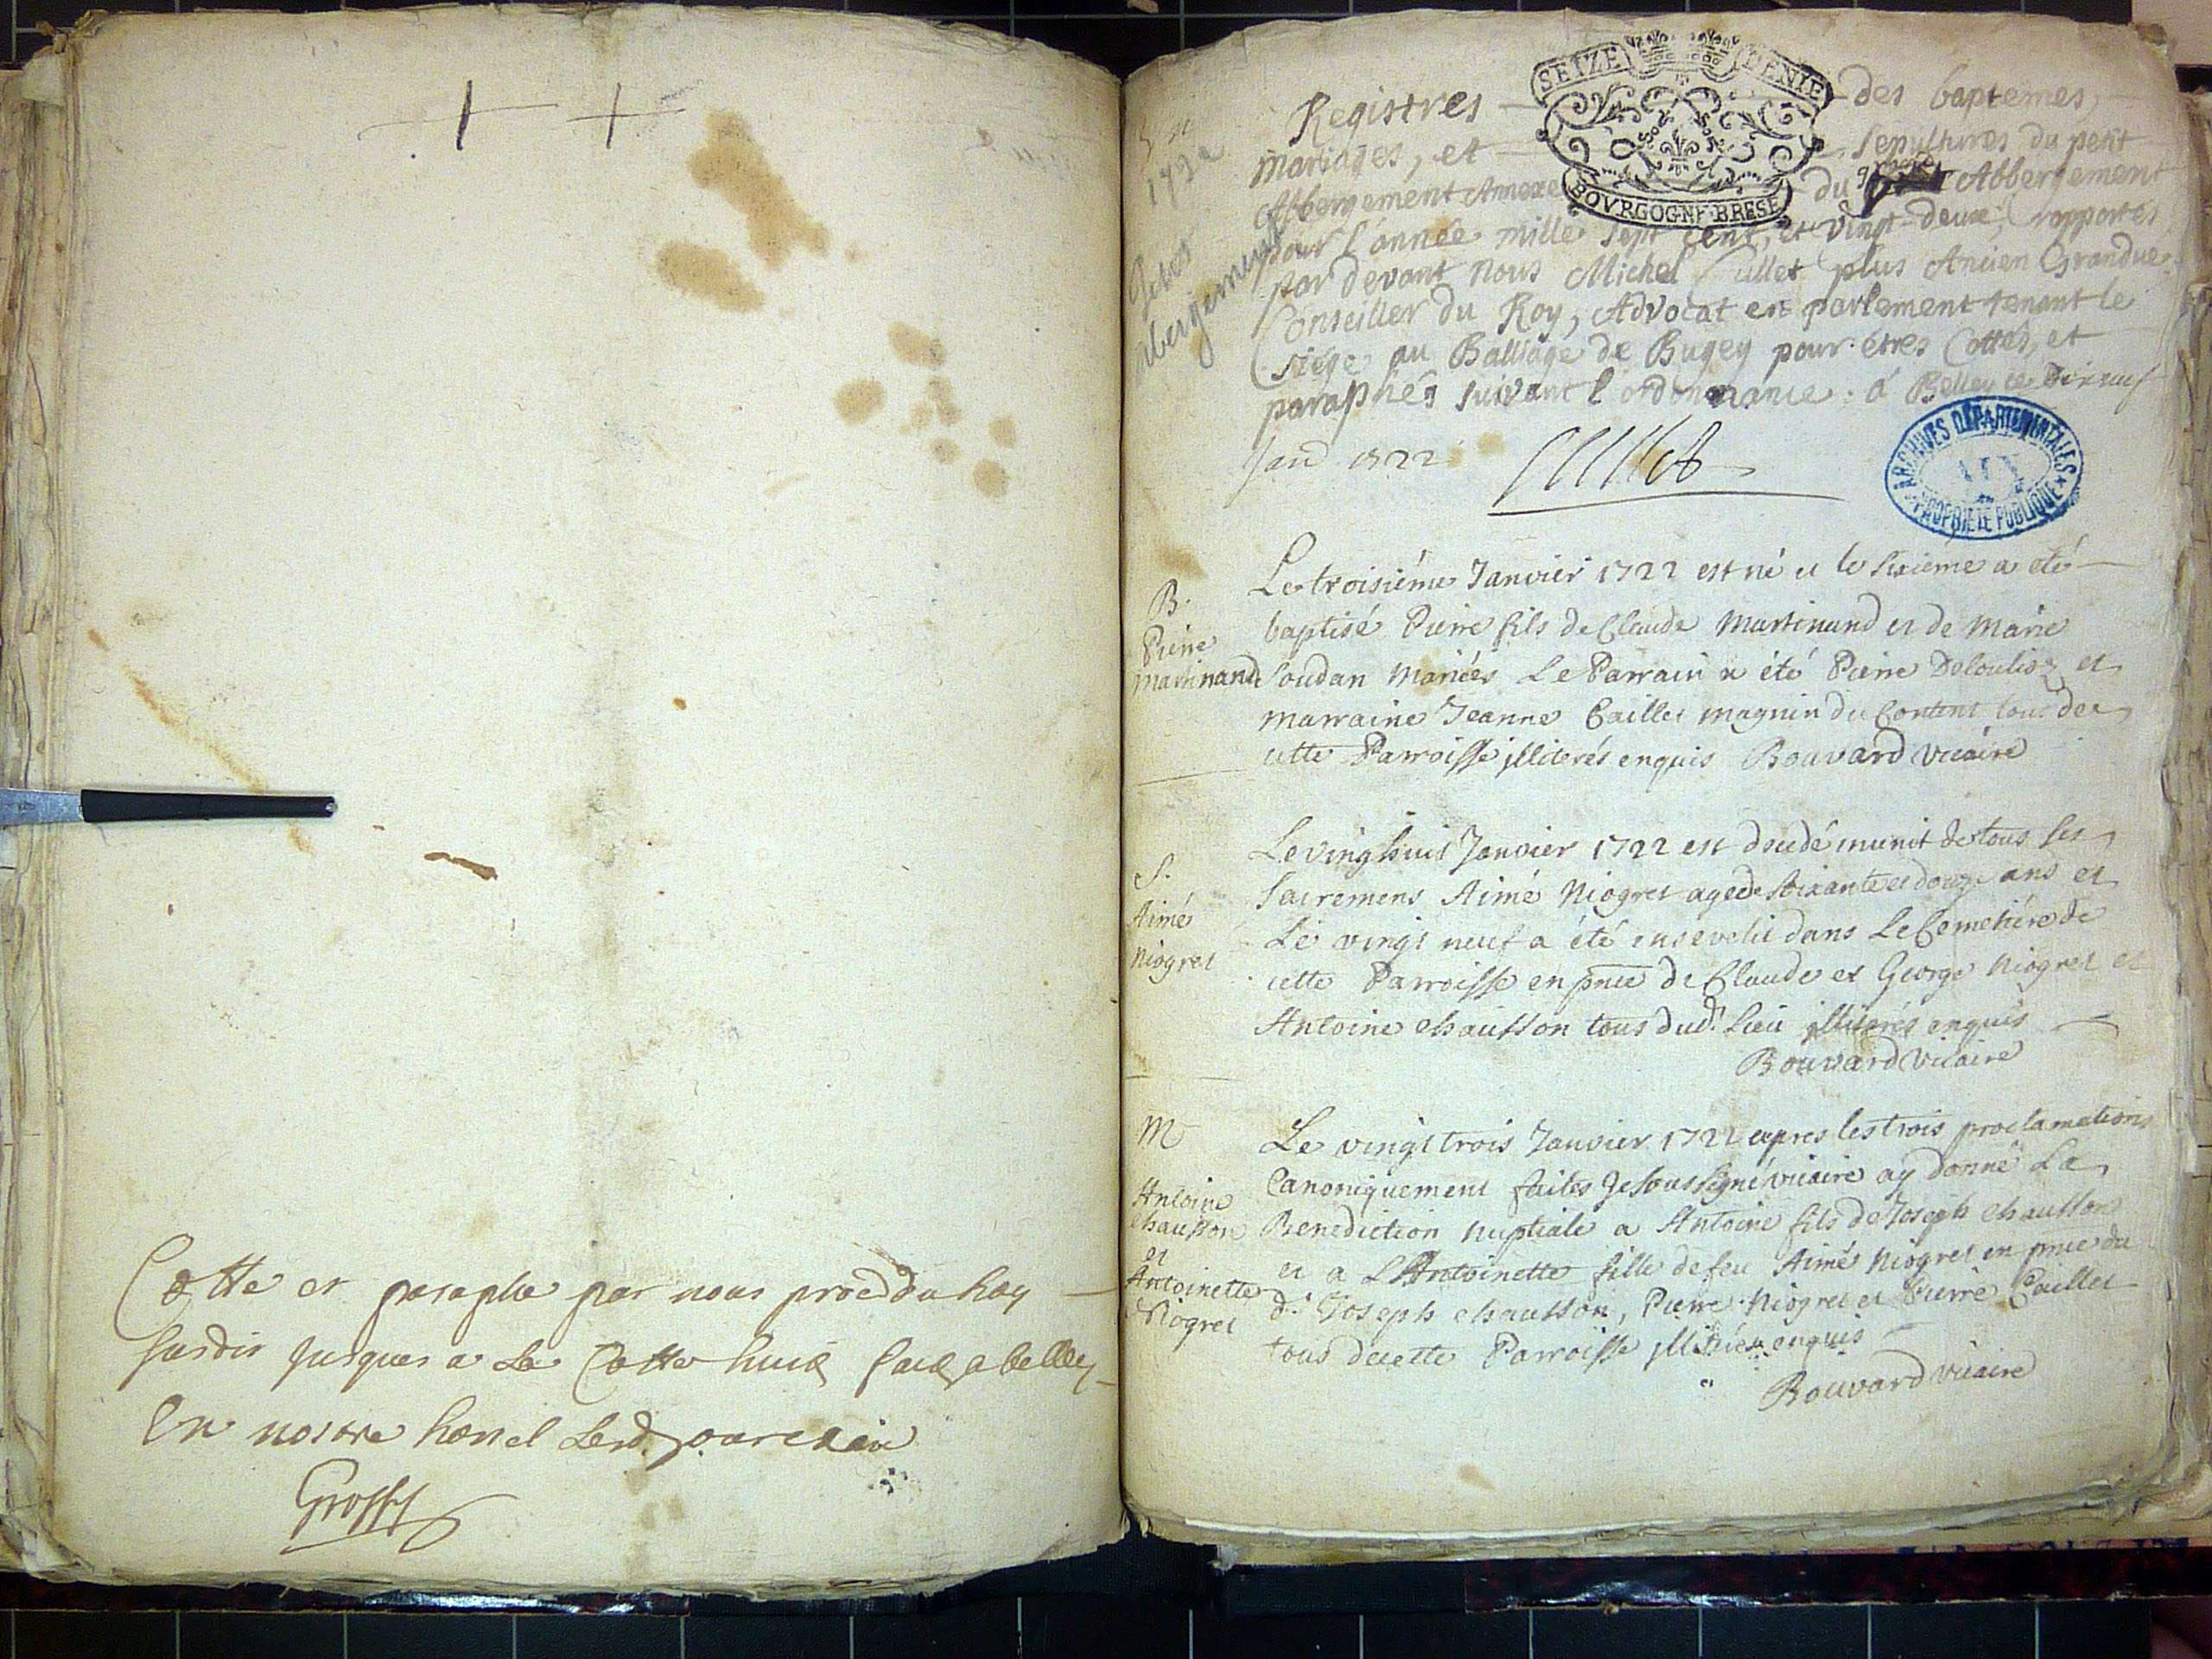 Cotte et paraphe par nous
jusques a la Cotte huict
En nostre hostel
SEIZE DENIE
BOVRGOGNE BRESE
1722
petit
abergement
Registres des baptemes,
mariages, et sepultures du petit
Abbergement Annexe du grand Abbergement
pour l'année mille sept cent, et vingt-deux, rapportés
par devant nous Michel Cullet plus Ancien Gradué
Conseiller du Roy, Advocat en parlement tenant le
siége au Balliage de Bugey pour étres Cottés, et
paraphés suivant l'ordonnance. á Belley ce dixneuf
Janv 1722
Cullet
ARCHIVES DÉPARTEMENTALES
AIN
PROPRIÉTÉ PUBLIQUE
B.
Pierre
Martinand
Le troisiéme Janvier 1722 est né et le sixieme a eté
baptisé Pierre fils de Claude Martinand et de Marie
Soudan Mariés Le Parrain a été Pierre et
marraine Jeanne Caillet magnin du Content tous de
cette Parroisse jlliterés enquis Bouvard vicaire
S.
Aimé
Niogret
Le vinghuit Janvier 1722 est decedé munit de tous ses
sacremens Aimé Niogret agé de soixante et douze ans et
Le vingt neuf a été ensevelit dans Le Cemetiére de
cette Parroisse en pnce de Claude et George Niogret et
Antoine chausson tous dud. Lieu jlliterés enquis
Bouvard Vicaire
M
Antoine
chausson
et
Antoinette
Niogret
Le vingt trois Janvier 1722 apres les trois proclamations
Canoniquement faites Je soussigné vicaire ay donné La
Benediction nuptiale a Antoine fils de Joseph chausson
et a Antoinette fille de feu Aimé Niogret en pnce du
d. Joseph chausson, Pierre Niogret et Pierre Caillet
tous de cette Parroisse jlliterés enquis
Bouvard vicaire